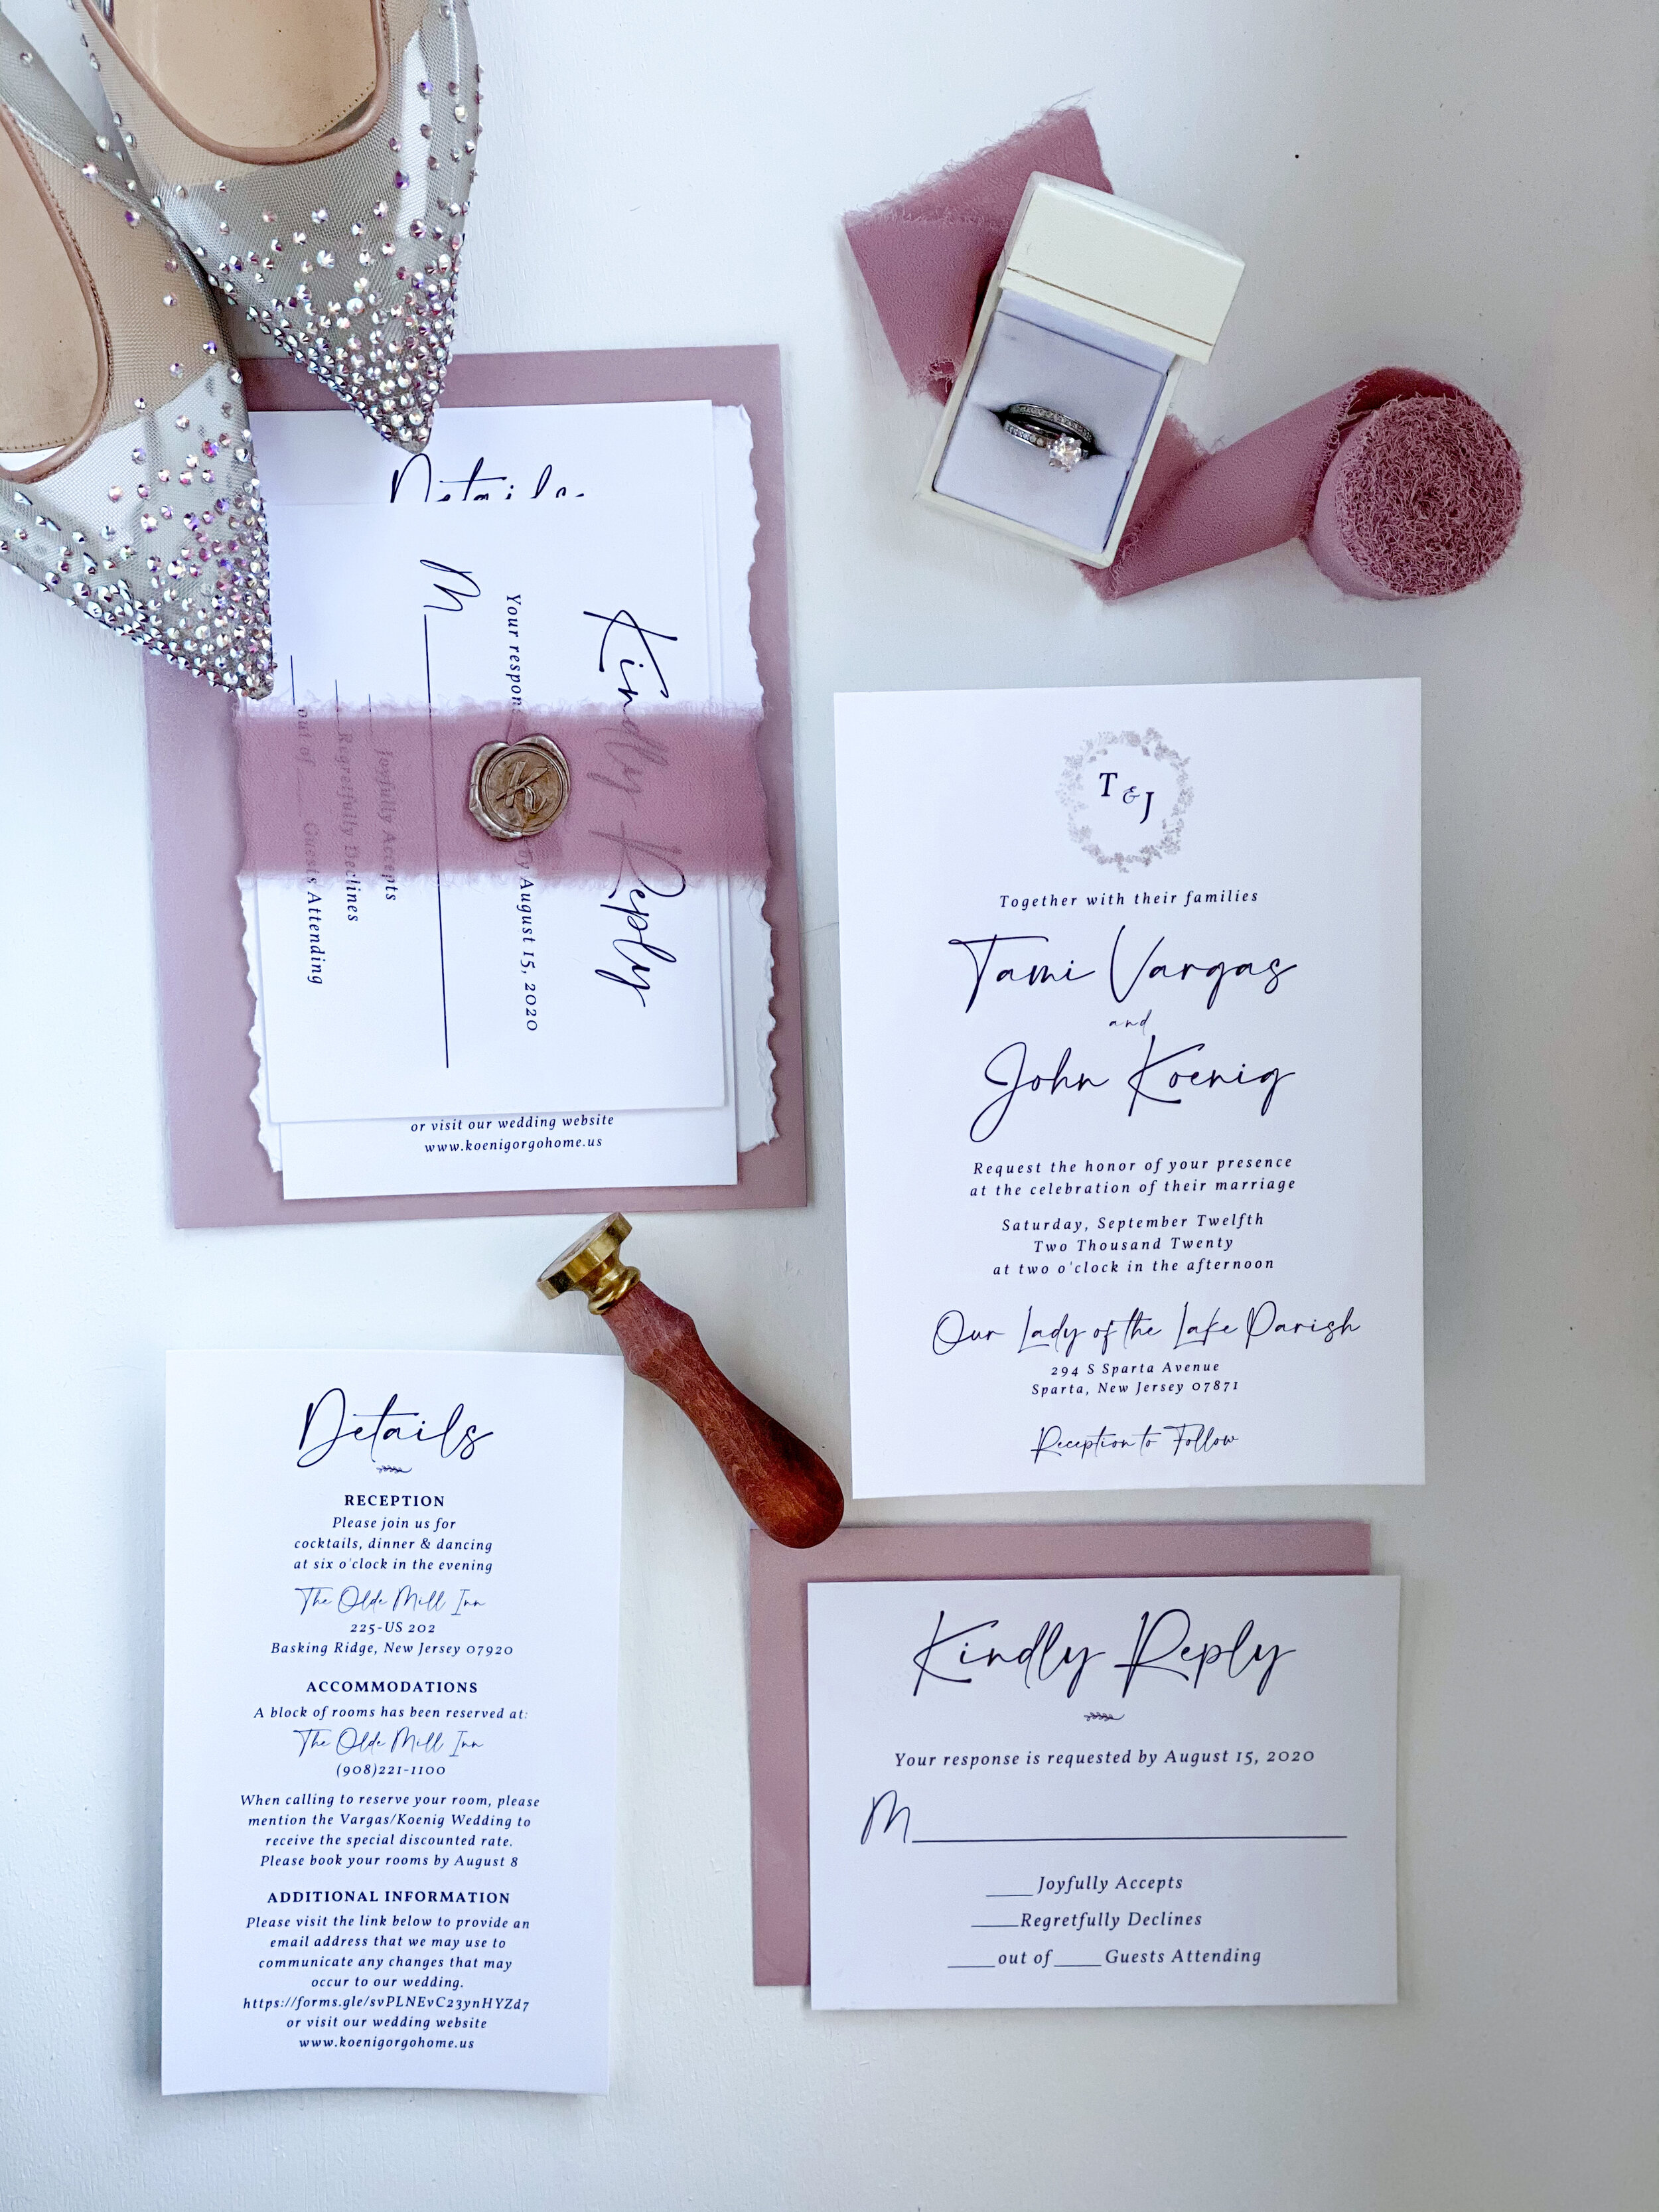 Details
M
Your respon
by August 15, 2020
Kindly Reply
Joyfully Accepts
Regretfully Declines
out of ____ Guests Attending
or visit our wedding website
www.koenigorgohome.us
K
T & J
Together with their families
Tami Vargas
and
John Koenig
Request the honor of your presence
at the celebration of their marriage
Saturday, September Twelfth
Two Thousand Twenty
at two o'clock in the afternoon
Our Lady of the Lake Parish
294 S Sparta Avenue
Sparta, New Jersey 07871
Reception to Follow
Details
RECEPTION
Please join us for
cocktails, dinner & dancing
at six o'clock in the evening
The Olde Mill Inn
225-US 202
Basking Ridge, New Jersey 07920
ACCOMMODATIONS
A block of rooms has been reserved at:
The Olde Mill Inn
(908)221-1100
When calling to reserve your room, please
mention the Vargas/Koenig Wedding to
receive the special discounted rate.
Please book your rooms by August 8
ADDITIONAL INFORMATION
Please visit the link below to provide an
email address that we may use to
communicate any changes that may
occur to our wedding.
https://forms.gle/svPLNEvC23ynHYZd7
or visit our wedding website
www.koenigorgohome.us
Kindly Reply
Your response is requested by August 15, 2020
M
____ Joyfully Accepts
____Regretfully Declines
____out of____ Guests Attending